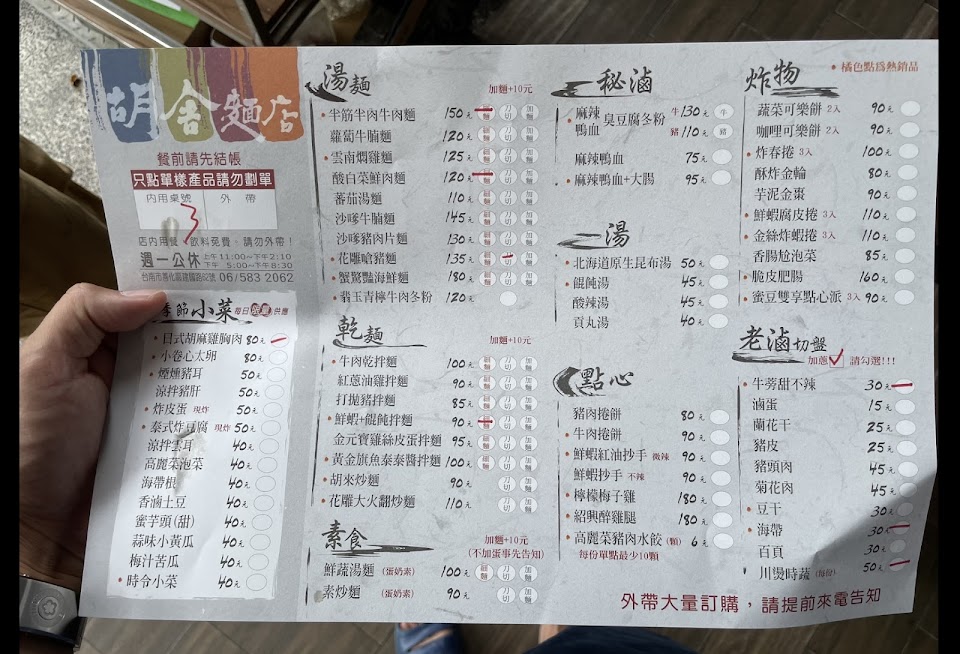 胡舍麵店
餐前請先結帳
只點單樣產品請勿劃單
內用桌號 外帶
3
店內用餐，飲料免費，請勿外帶！
週一公休 上午11:00~下午2:10
下午 5:00~下午8:30
06/583 2062
季節小菜 每日 供應
日式胡麻雞胸肉 80元
小卷心太卵 80元
煙燻豬耳 50元
涼拌豬肝 50元
炸皮蛋 現炸 50元
泰式炸豆腐 現炸 50元
涼拌雲耳 40元
高麗菜泡菜 40元
海帶根 40元
香滷土豆 40元
蜜芋頭(甜) 40元
蒜味小黃瓜 40元
梅汁苦瓜 40元
時令小菜 40元
湯麵 加麵+10元
半筋半肉牛肉麵 150元 細麵 刀切 加麵
蘿蔔牛腩麵 120元 細麵 刀切 加麵
雲南燜雞麵 125元 細麵 刀切 加麵
酸白菜鮮肉麵 120元 細麵 刀切 加麵
蕃茄湯麵 110元 細麵 刀切 加麵
沙嗲牛腩麵 145元 細麵 刀切 加麵
沙嗲豬肉片麵 130元 細麵 刀切 加麵
花雕嗆豬麵 135元 細麵 刀切 加麵
蟹驚豔海鮮麵 180元 細麵 刀切 加麵
翡玉青檸牛肉冬粉 120元
乾麵 加麵+10元
牛肉乾拌麵 100元 細麵 刀切 加麵
紅蔥油雞拌麵 90元 細麵 刀切 加麵
打拋豬拌麵 85元 細麵 刀切 加麵
鮮蝦+餛飩拌麵 90元 細麵 刀切 加麵
金元寶雞絲皮蛋拌麵 95元 細麵 刀切 加麵
黃金旗魚泰泰醬拌麵 100元 細麵 刀切 加麵
胡來炒麵 90元 刀切 加麵
花雕大火翻炒麵 110元 刀切 加麵
素食 加麵+10元
(不加蛋事先告知)
鮮蔬湯麵 (蛋奶素) 100元 細麵 刀切 加麵
素炒麵 (蛋奶素) 90元 刀切 加麵
秘滷
麻辣鴨血 臭豆腐冬粉 牛130元 牛
豬110元 豬
麻辣鴨血 75元
麻辣鴨血+大腸 95元
一湯
北海道原生昆布湯 50元
餛飩湯 45元
酸辣湯 45元
貢丸湯 40元
點心
豬肉捲餅 80元
牛肉捲餅 90元
鮮蝦紅油抄手 微辣 90元
鮮蝦抄手 不辣 90元
檸檬梅子雞 180元
紹興醉雞腿 180元
高麗菜豬肉水餃 (顆) 6元
每份單點最少10顆
炸物 橘色點為熱銷品
蔬菜可樂餅 2入 90元
咖哩可樂餅 2入 90元
炸春捲 3入 100元
酥炸金輪 80元
芋泥金棗 90元
鮮蝦腐皮捲 3入 110元
金絲炸蝦捲 3入 110元
香腸尬泡菜 85元
脆皮肥腸 160元
蜜豆雙享點心派 3入 90元
老滷切盤
加蔥 請勾選!!!
牛蒡甜不辣 30元
滷蛋 15元
蘭花干 25元
豬皮 25元
豬頭肉 45元
菊花肉 45元
豆干 30元
海帶 30元
百頁 30元
川燙時蔬 50元
外帶大量訂購，請提前來電告知